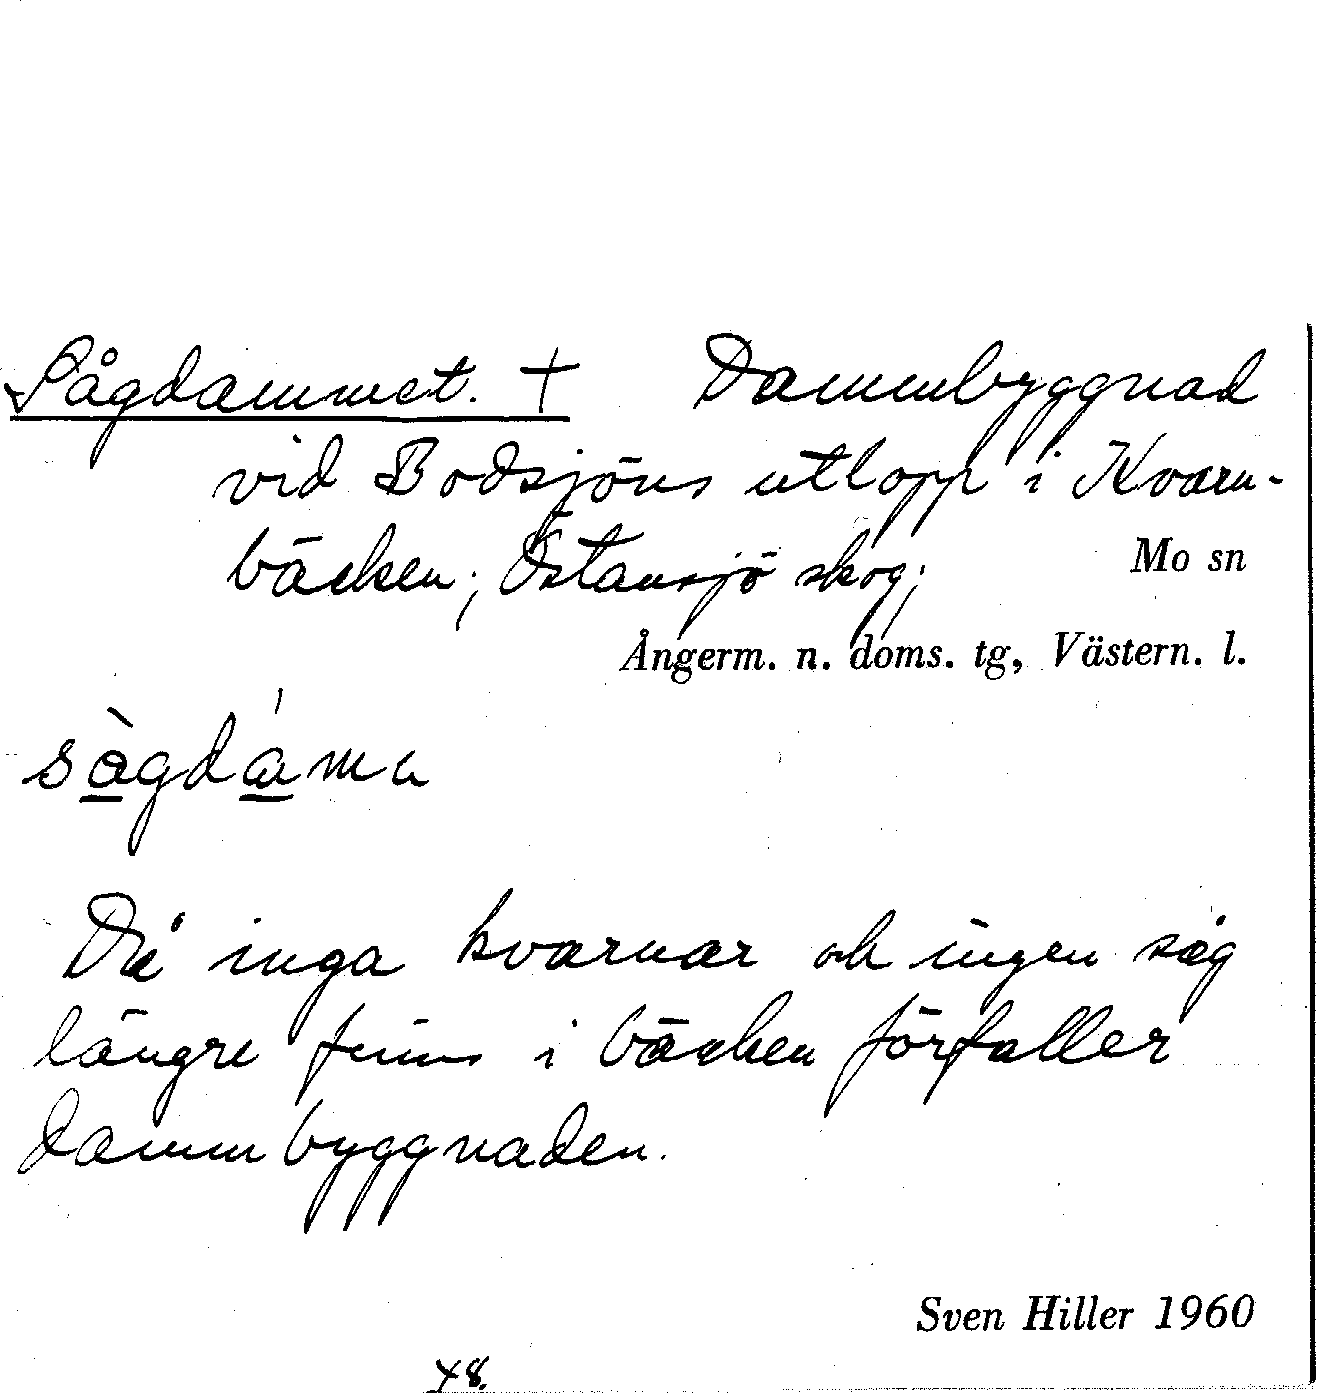 Sågdammet. † Dammbyggnad
vid Bodsjöns utlopp i Kvarn-
bäcken; Östansjö skog;
Mo sn
Ångerm. n. doms. tg, Västern. l.
såg
Då inga kvarnar och ingen såg
längre finns i bäcken förfaller
dammbyggnaden.
Sven Hiller 1960
48.